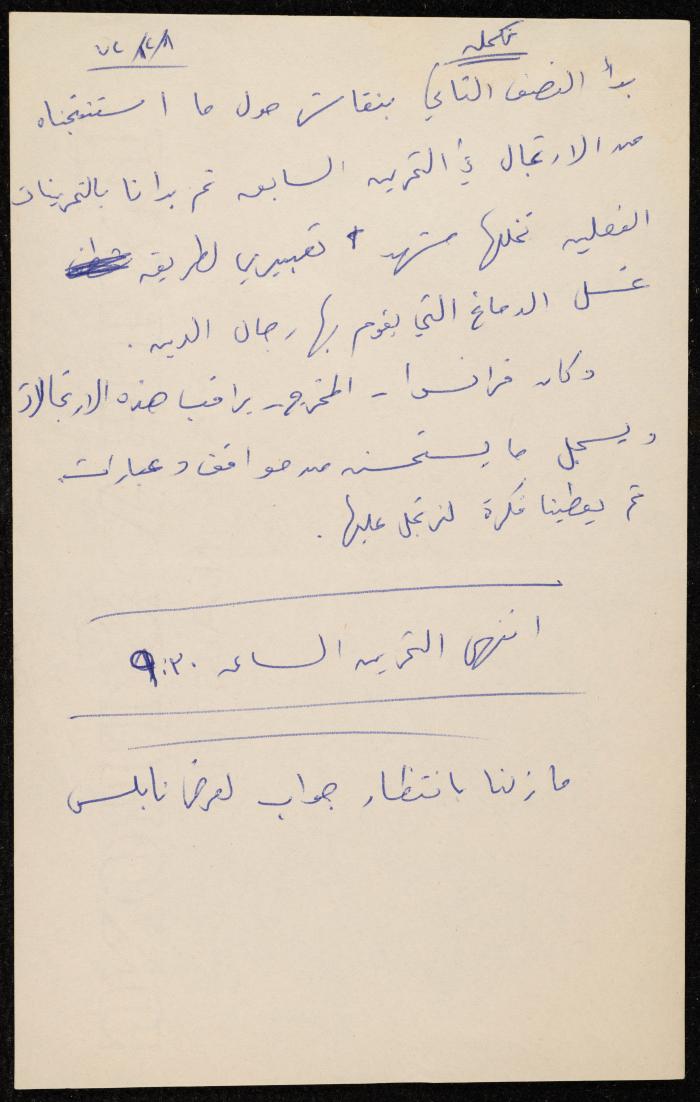 تكمله ٧٢/٢/٨
بدأ النصف الثاني بنقاش حول ما استنتجناه
من الارتجال في التمرين السابق ثم بدانا بالتمرينات
الفعليه تخللها مشهد تعبيري لطريقه
غسل الدماغ التي يقوم بها رجال الدين .
وكان فرانسوا - المخرج - يراقب هذه الارتجالات
ويسجل ما يستحسنه من مواقف وعبارات
ثم يعطينا فكرة لنرتجل عليها .
انتهى التمرين الساعه ٩:٣٠
ما زلنا بانتظار جواب لعرض نابلس